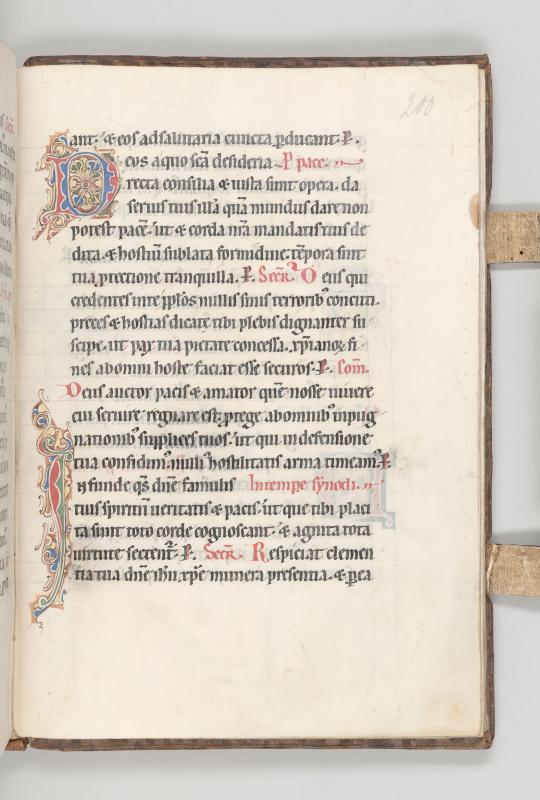 200
ant. & eos ad salutaria cuncta ꝑducant. P.
Deus a quo sc̄a desideria. P pace.
recta consilia & iusta sunt opera. da
seruis tuis illā quā mundus dare non
potest pacē. ut & corda nr̄a mandatis tuis de
dita. & hostiū sublata formidine. tēpora sint
tua ꝓtectione tranquilla. P. Secr̄. Deus qui
credentes in te pp̄los nullis sinis terrorib; concuti.
preces & hostias dicate tibi plebis dignanter su
scipe. ut pax tua pietate concessa. xp̄ianor̄ fi
nes ab omni hoste faciat esse securos. P. Com̄.
Deus auctor pacis & amator quē nosse uiuere
cui seruire regnare est. ꝓtege ab omnib; inpug
nationib; supplices tuos. ut qui in defensione
tua confidim⁹. nulli⁹ hostilitatis arma timeam⁹. P.
Infunde qs̄ dn̄e famulis In tempr̄e synodi.
tuis spiritū ueritatis & pacis. ut que tibi placi
ta sunt toto corde cognoscant. & agnita tota
uirtute sectent̄. P. Secr̄. Respiciat clemen
tia tua dn̄e ihū xp̄e munera presentia. & ꝑ ea